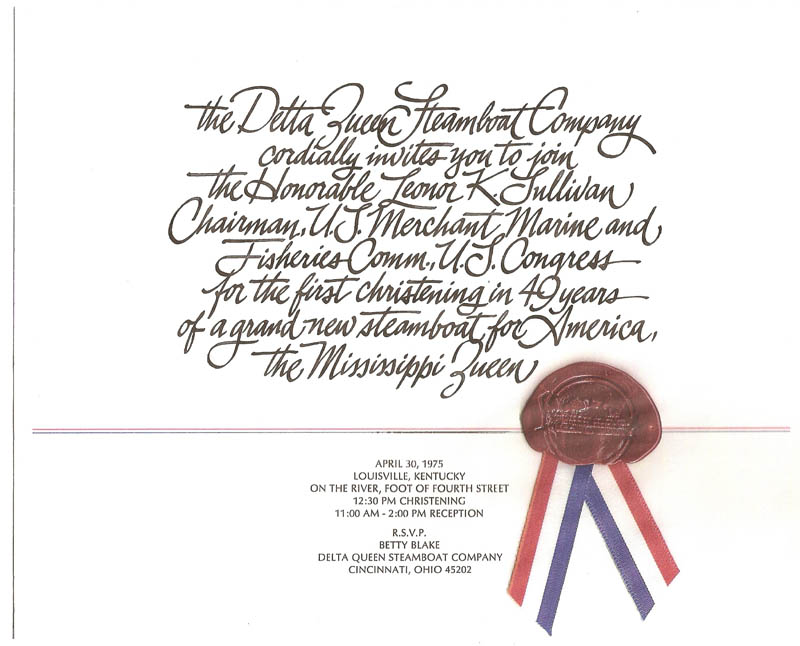 the Delta Queen Steamboat Company
cordially invites you to join
the Honorable Leonor K Sullivan
Chairman, U.S. Merchant Marine and
Fisheries Comm., U.S. Congress
for the first christening in 49 years
of a grand new steamboat for America,
the Mississippi Queen
APRIL 30, 1975
LOUISVILLE, KENTUCKY
ON THE RIVER, FOOT OF FOURTH STREET
12:30 PM CHRISTENING
11:00 AM - 2:00 PM RECEPTION
R.S.V.P.
BETTY BLAKE
DELTA QUEEN STEAMBOAT COMPANY
CINCINNATI, OHIO 45202